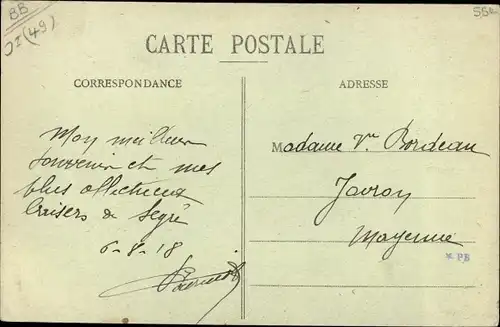 BB
JI (49)
CARTE POSTALE
CORRESPONDANCE
ADRESSE
Mon meilleur
souvenir et mes
plus affectueux
baisers de Segré
6-8-18
Madame Vve Bordeau
Javron
Mayenne
* PB